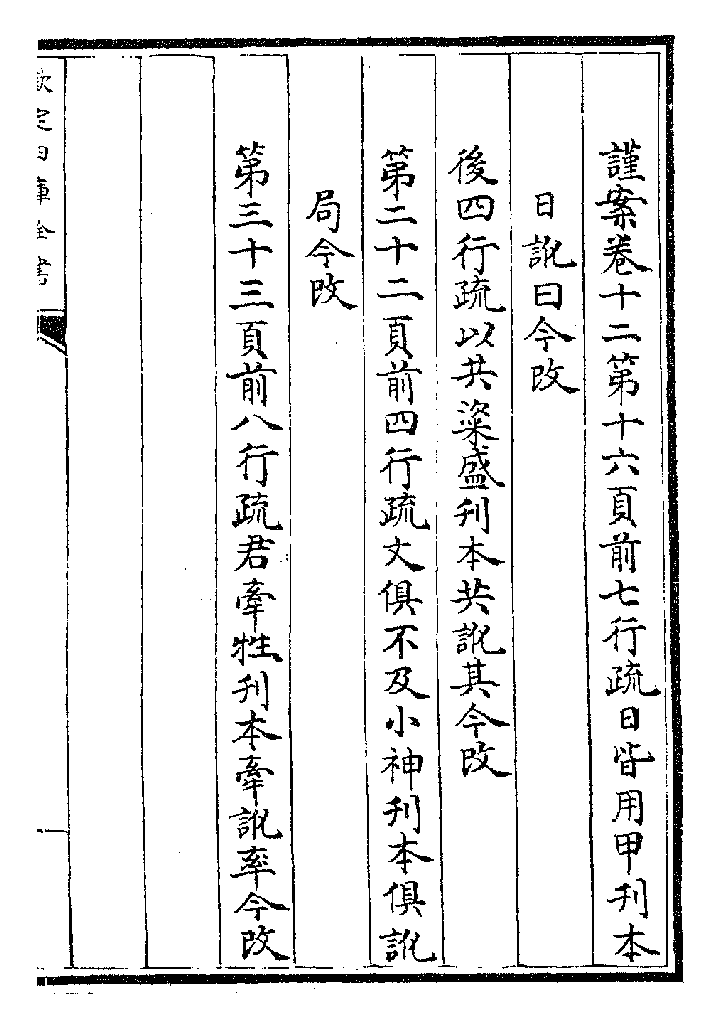 謹案卷十二第十六頁前七行疏日皆用甲刊本
日訛曰今改
後四行疏以共粢盛刊本共訛其今改
第二十二頁前四行疏文俱不及小神刊本俱訛
局今改
第三十三頁前八行疏君牽牲刊本牽訛率今改
欽定四庫全書